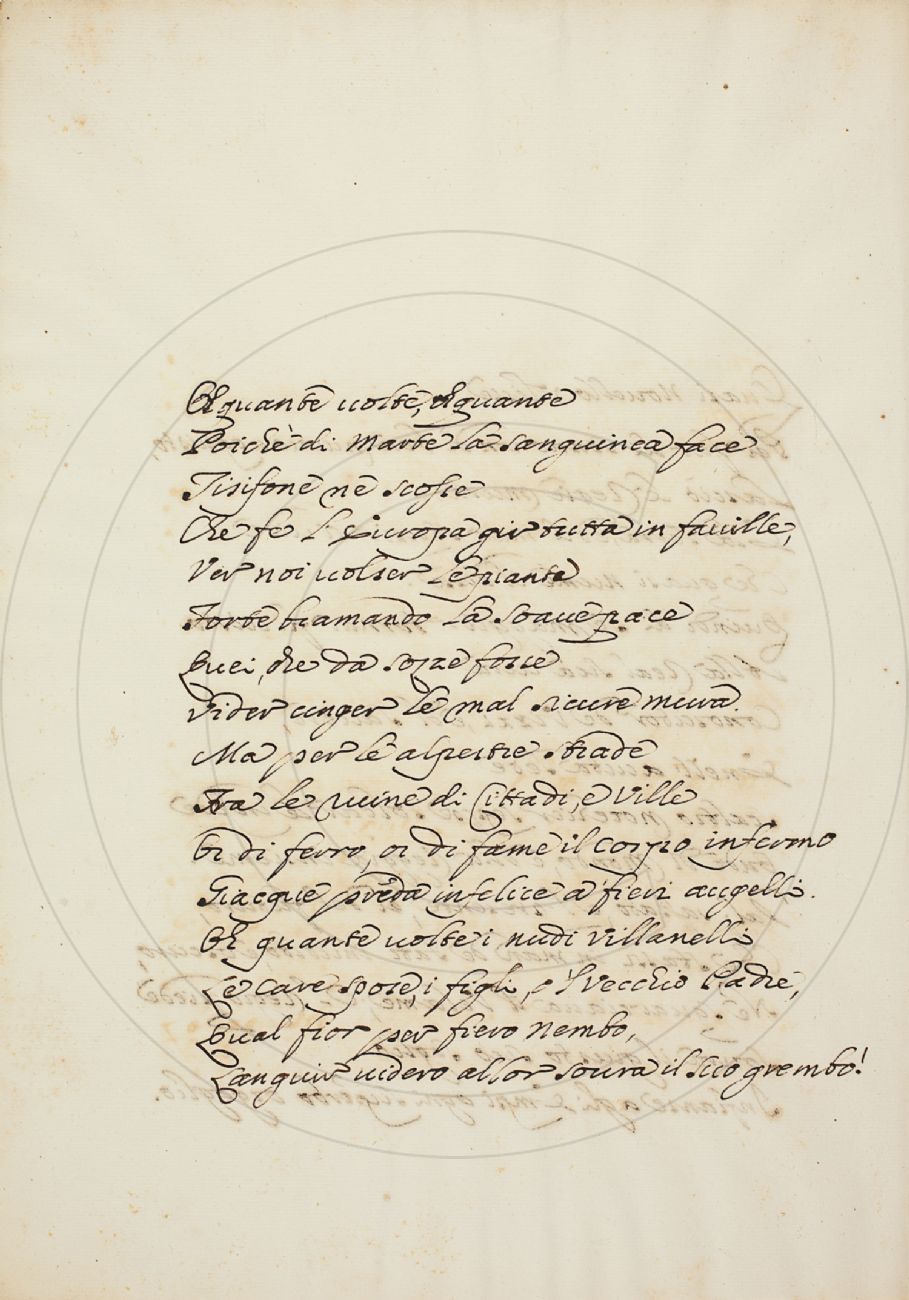 Oh quante volte, oh quante
Poichè di Marte la sanguinea face
Tisifone ne scosse
Che fe l'Europa gir tutta in faville,
Ver noi volser le piante
Forte bramando la soave pace
Quei, che da sozze fosse
Vider cinger le mal sicure mura.
Ma per le alpestre strade
Fra le ruine di Cittadi, e Ville
Or di ferro, or di fame il corpo infermo
Giacque preda infelice a fieri augelli.
Oh quante volte i nudi villanelli
Le care spose, i figli, e 'l vecchio Padre,
Qual fior per fiero nembo,
Languir videro allor sovra il suo grembo!